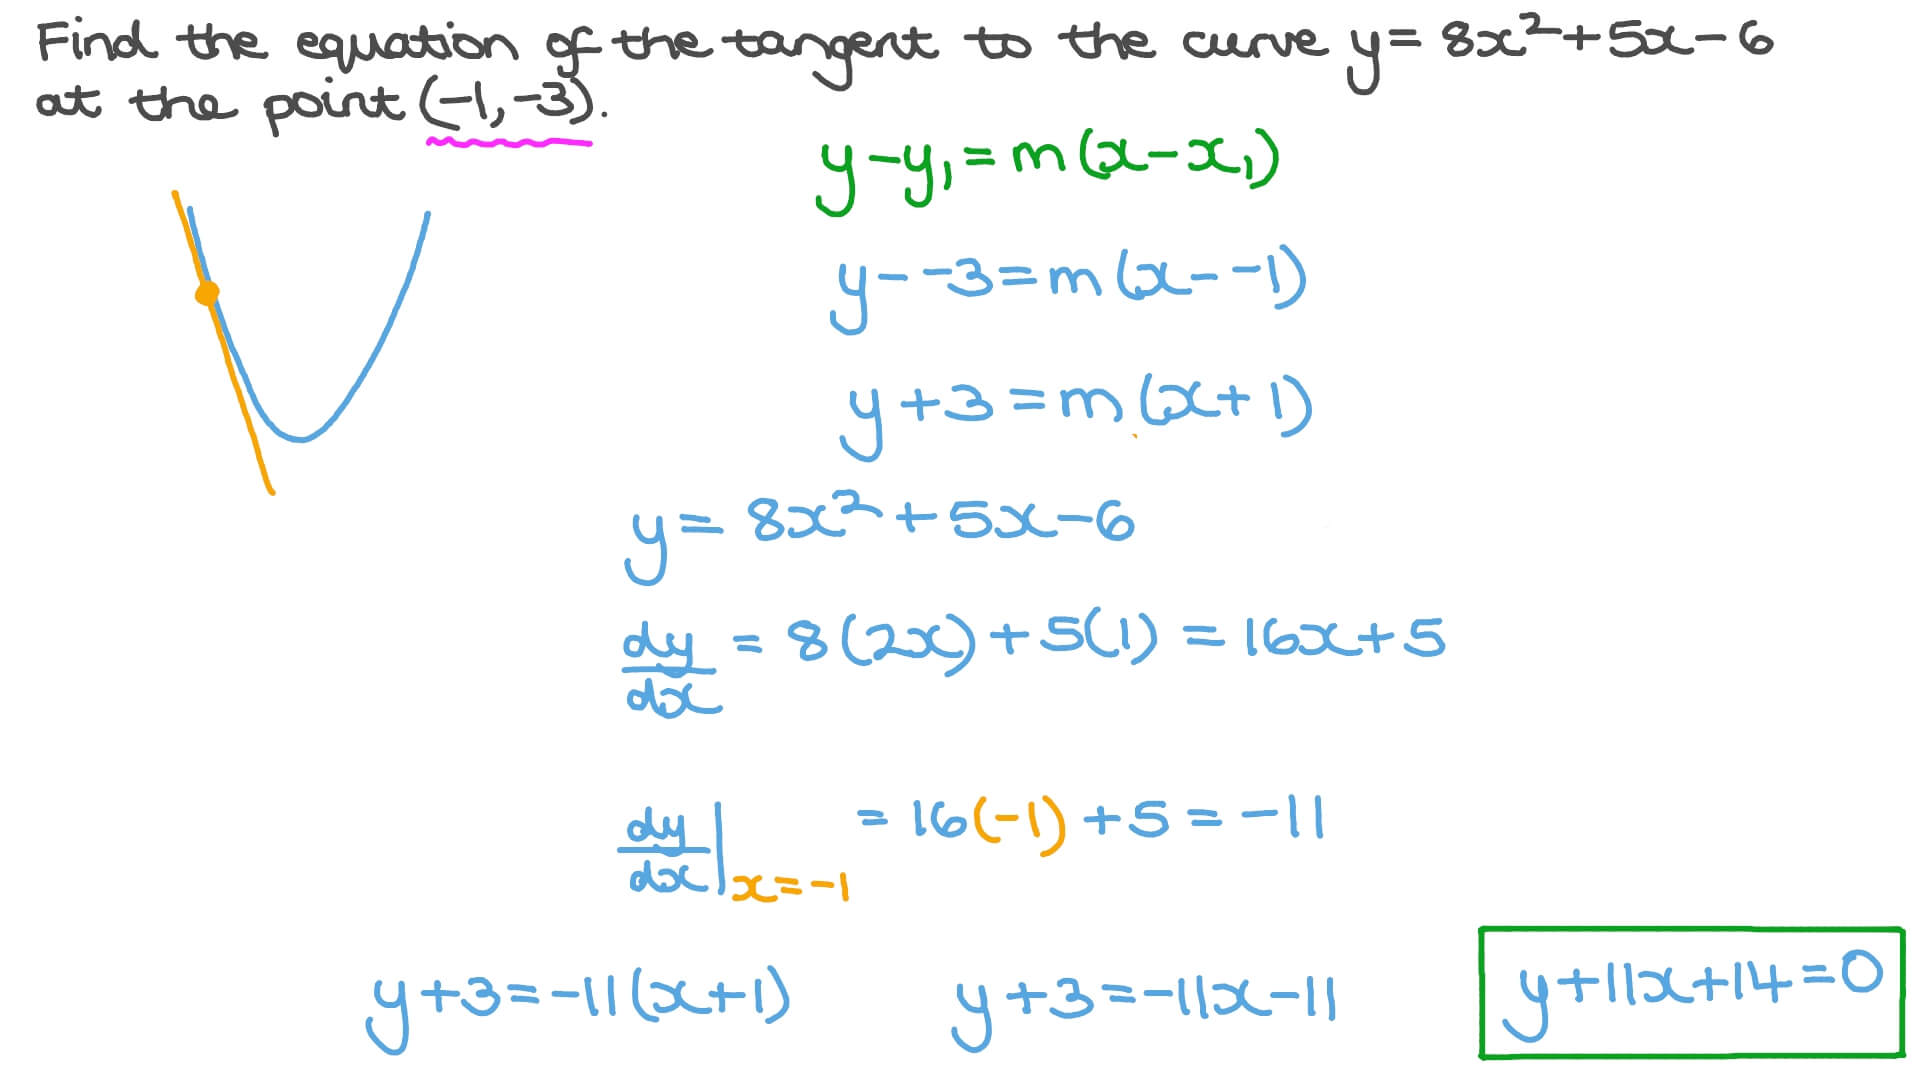 Find the equation of the tangent to the curve y = 8x² + 5x - 6
at the point (-1, -3).
y - y₁ = m(x - x₁)
y - -3 = m(x - -1)
y + 3 = m(x + 1)
y = 8x² + 5x - 6
dy/dx = 8(2x) + 5(1) = 16x + 5
dy/dx |x=-1 = 16(-1) + 5 = -11
y + 3 = -11(x + 1) y + 3 = -11x - 11 y + 11x + 14 = 0